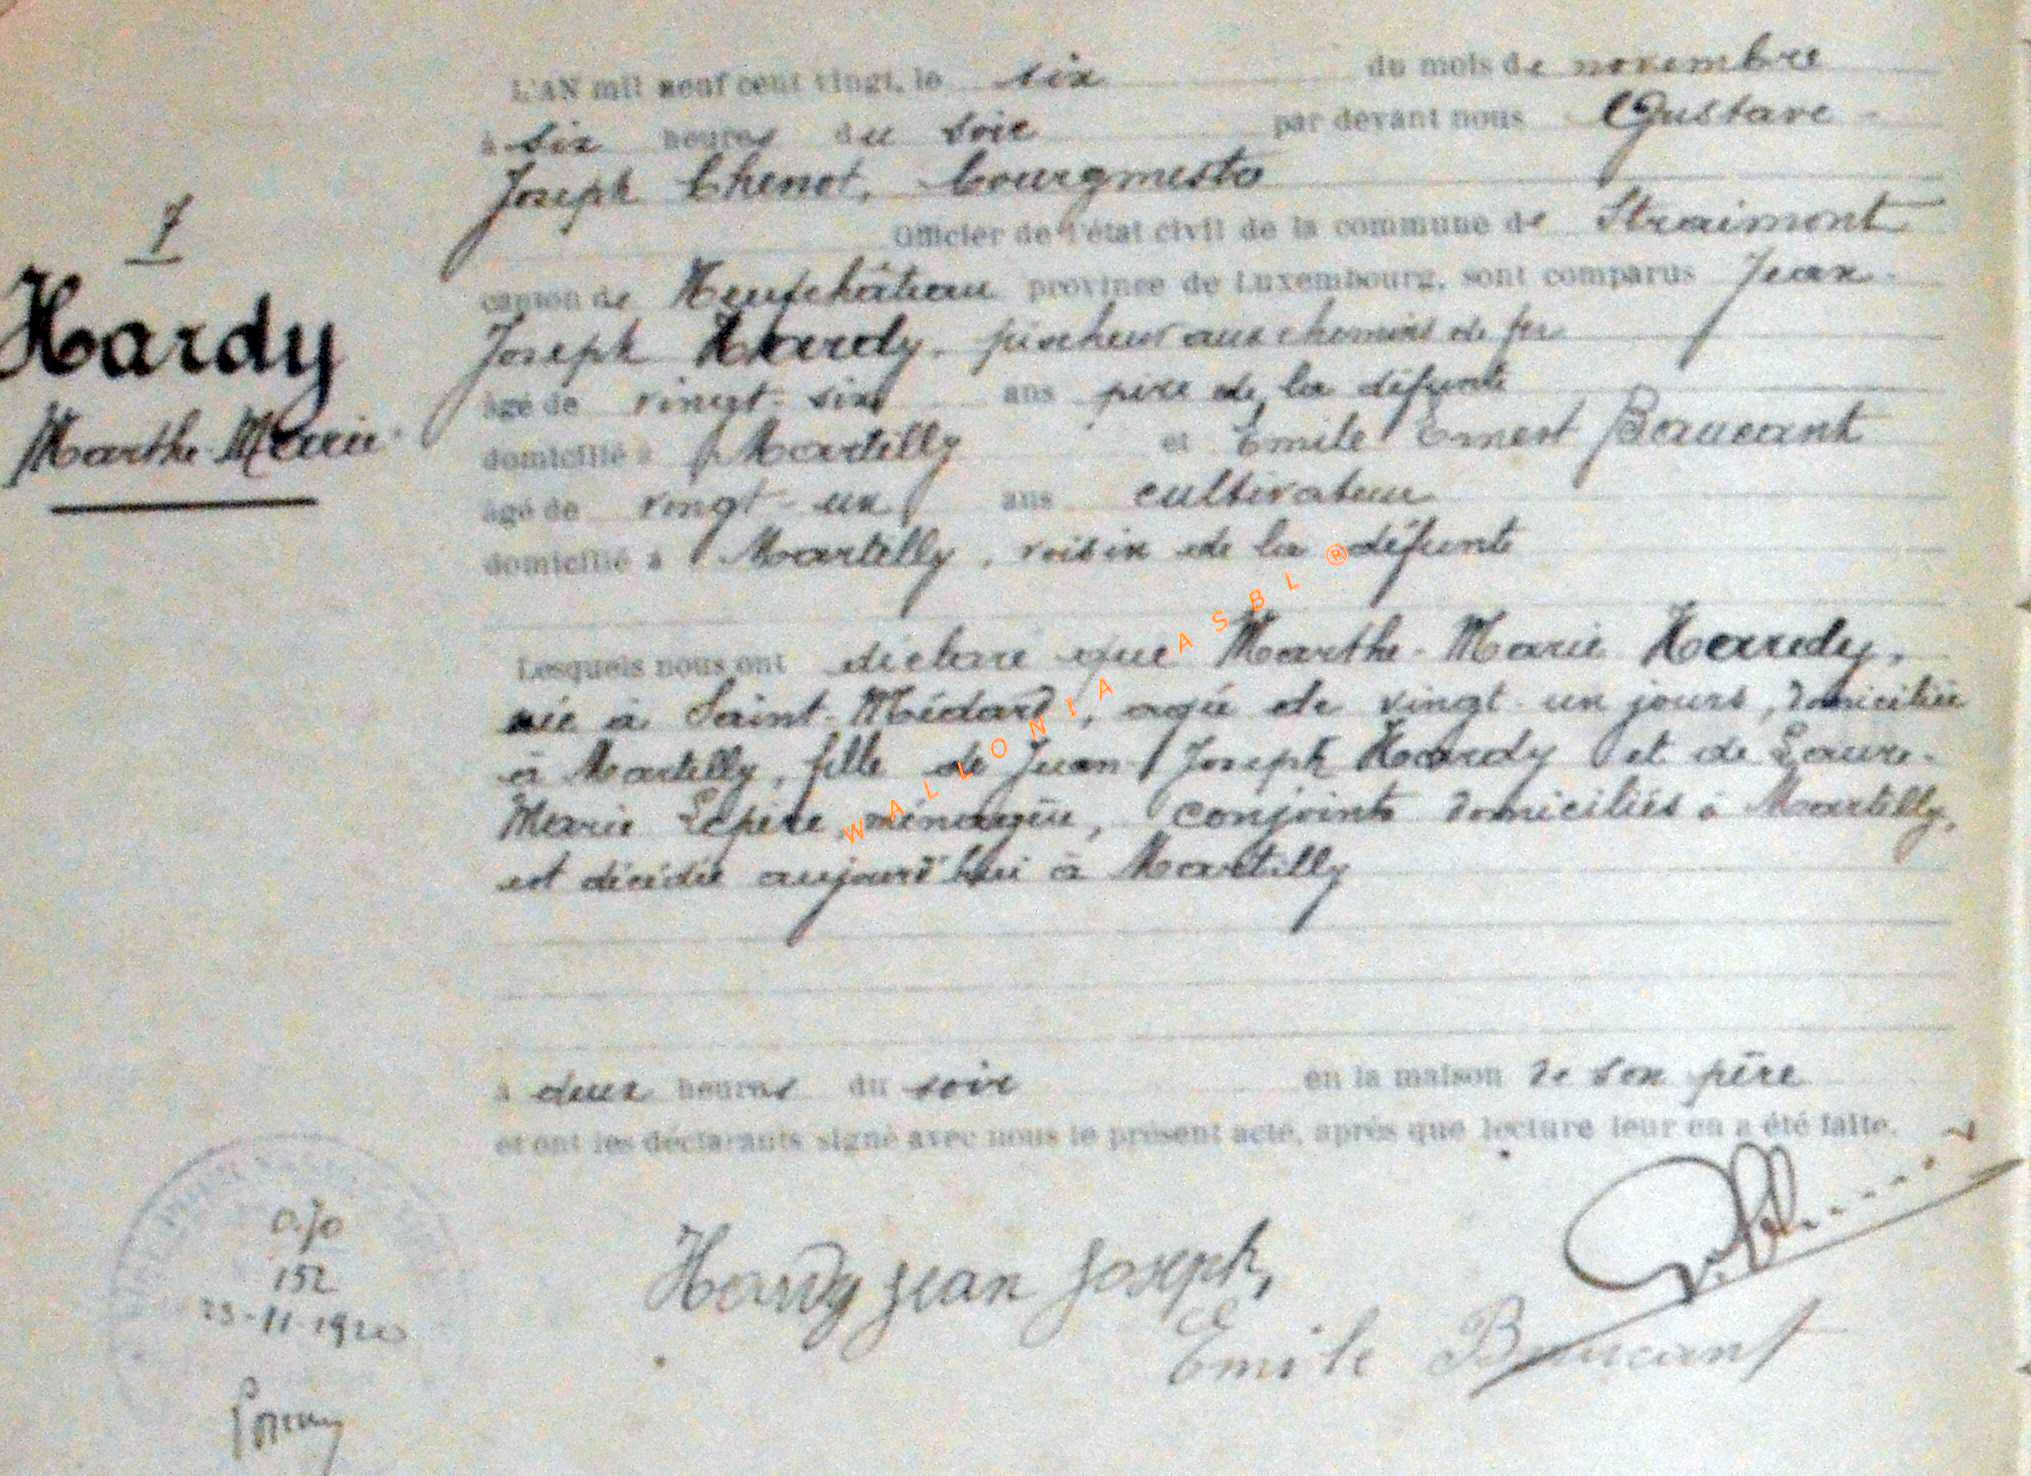 7
Hardy
Marthe-Marie
L'AN mil neuf cent vingt, le six du mois de novembre
à six heures du soir par devant nous Gustave
Joseph Chenot, bourgmestre
Officier de l'état civil de la commune de Straimont
canton de Neufchâteau province de Luxembourg, sont comparus Jean
Joseph Hardy, piocheur aux chemins de fer
âgé de vingt-six ans père de la défunte
domicilié à Martilly et Emile Ernest Beaucant
âgé de vingt-un ans cultivateur
domicilié à Martilly, voisin de la défunte
Lesquels nous ont déclaré que Marthe-Marie Hardy,
née à Saint-Médard, agée de vingt-un jours, domiciliée
à Martilly, fille de Jean-Joseph Hardy et de Laure-
Marie Lepère ménagère, conjoints domiciliés à Martilly,
est décédée aujourd'hui à Martilly
à deux heures du soir en la maison de son père
et ont les déclarants signé avec nous le présent acte, après que lecture leur en a été faite.
Hardy Jean Joseph,
Emile Beaucant
0.70
152
23-11-1920
WALLONIA ASBL ®